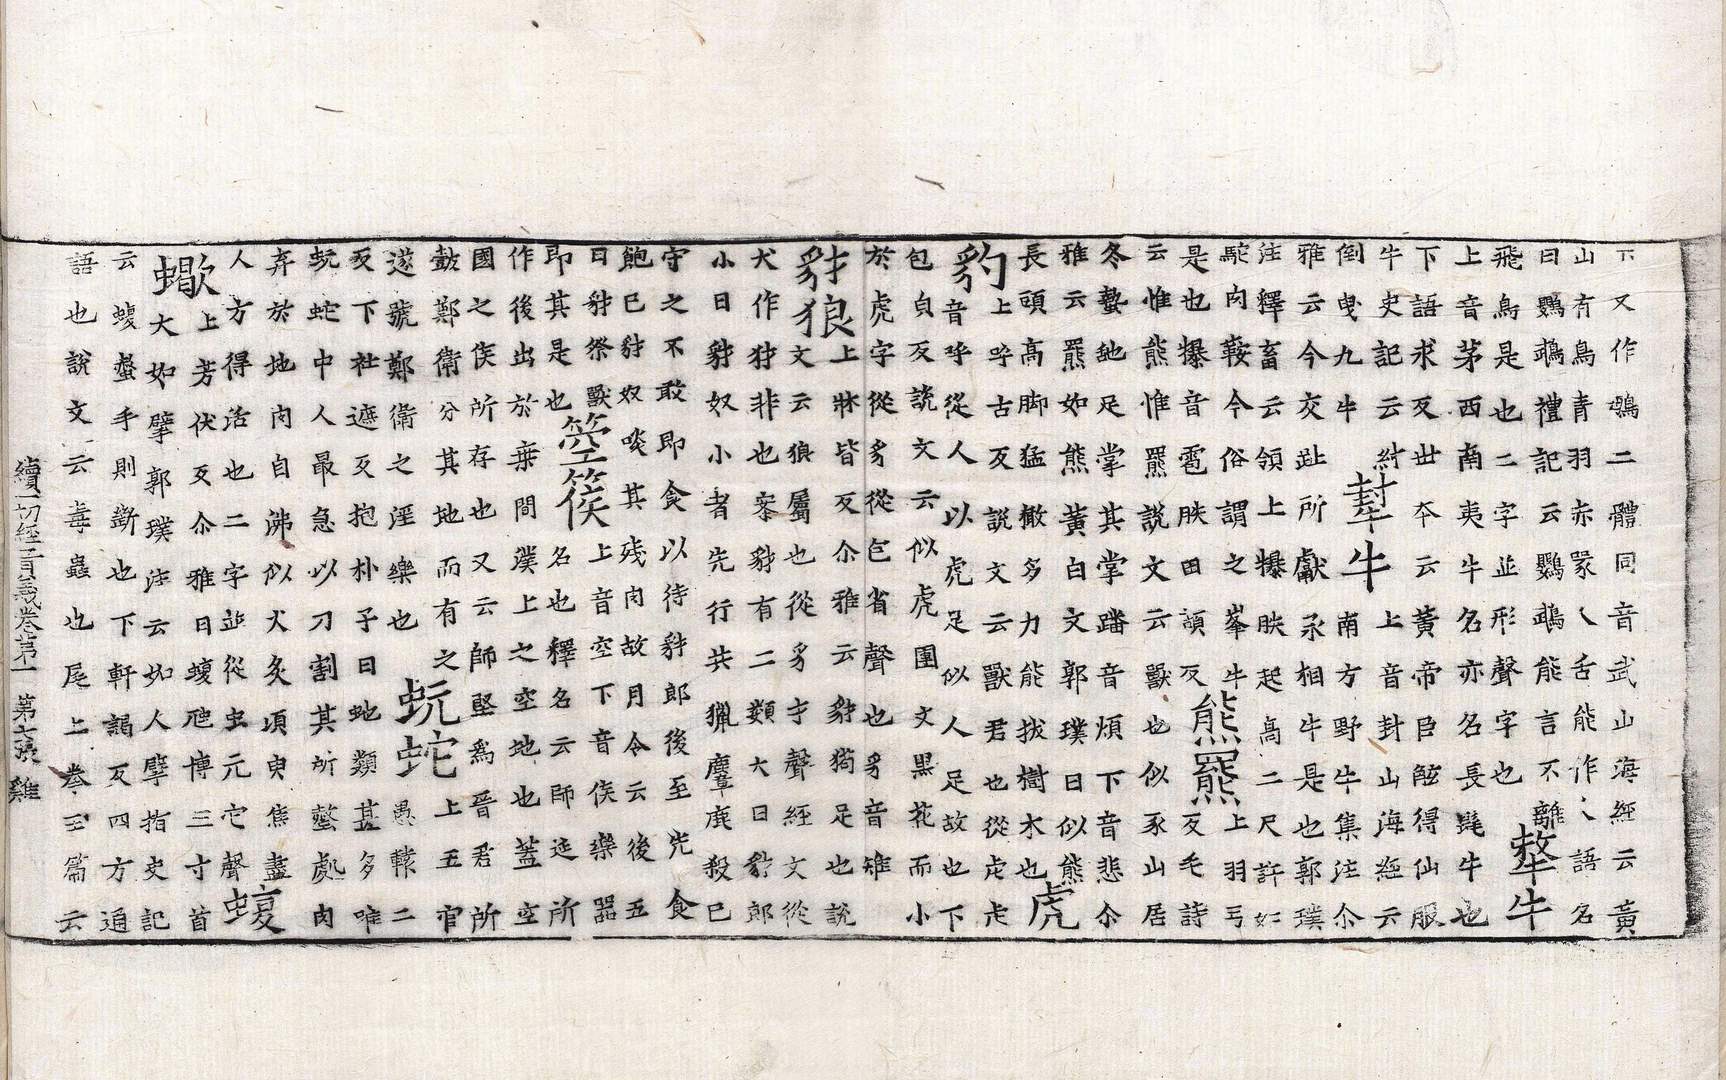 下又作鵡二體同音武山海經云黃
山有鳥青羽赤喙人舌能作人語名
曰鸚䳇禮記云鸚䳇能言不離
飛鳥是也二字並形聲字也
犛牛
上音茅西南夷牛名亦名長髦牛也
下語求反世本云黃帝臣胲得仙服
牛史記云紂
倒曳九牛
犎牛
上音封山海經云
南方野牛集注尒
雅云今交趾所獻丞相牛是也郭璞
注釋畜云領上犦胅起高二尺許如
駝肉鞍今俗謂之峯牛
是也犦音雹胅田頡反
熊羆
上羽弓
反毛詩
云惟熊惟羆說文云獸也似豕山居
冬蟄䖝足掌其掌蹯音煩下音悲尒
雅云羆如熊黃白文郭璞曰似熊
長頭高脚猛憨多力能拔樹木也
虎
上呼古反說文云獸君也從虍虍
音呼從人以虎足似人足故也
豹
下
包皃反說文云似虎圓文黑花而小
於虎字從豸從包省聲也豸音雉
豺狼
上牀皆反尒雅云豺狗足也說
文云狼屬也從豸才聲經文從
犬作犲非也案豺有二類大曰豺郎
小曰豺奴小者先行共獵麞鹿殺已
守之不敢即食以待豺郎後至先食
飽已豺奴啖其殘肉故月令云後五
日豺祭獸
即其是也
箜篌
上音空下音侯樂器
名也釋名云師延所
作後出於桒間濮上之空地也蓋空
國之侯所存也又云師堅爲晋君所
鼓鄭衛分其地而有之
遂號鄭衛之淫樂也
蚖蛇
上五官
愚轅二
反下社遮反抱朴子曰虵類甚多唯
蚖蛇中人最急以刀割其所螫處肉
弃於地肉自沸似火炙須臾焦盡
人方得活也二字並從虫元它聲
蝮
蠍
上芳伏反尒雅曰蝮虺博三寸首
大如擘郭璞注云如人擘指史記
云蝮螫手則斷也下軒謁反四方通
語也說文云毒蟲也尾上卷玉篇云
續一切經音義卷第一 第七張 雞